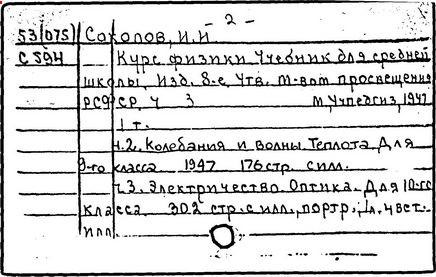 - 2 -
53(075) Соколов, И.И.
С 594 Курс физики Учебник для средней
школы. Изд. 8-е Утв. М-вом просвещения
РСФСР, Ч 3 М, Учпедгиз, 1947
1 т.
ч.2. Колебания и волны. Теплота. Для
9-го класса 1947 176 стр. с илл.
ч.3. Электричество. Оптика. Для 10-го
класса 302 стр. с илл., портр., 1л. цвет.
илл